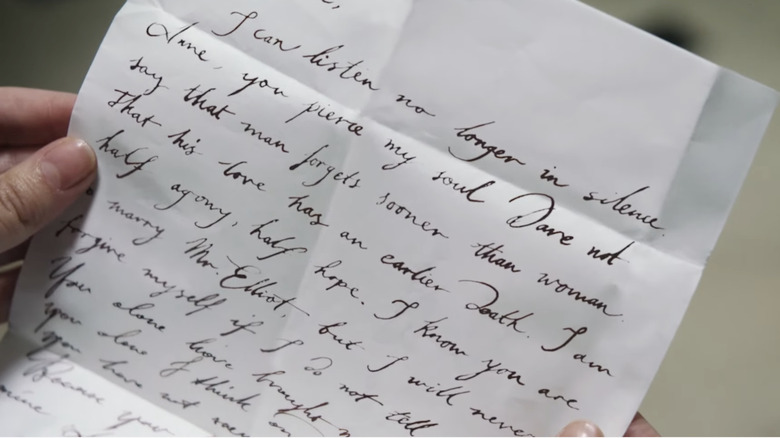 I can listen no longer in silence.
Anne, you pierce my soul Dare not
say that man forgets sooner than woman.
That his love has an earlier Death. I am
half agony, half hope. I know you are
marry Mr. Elliot, but I will never
forgive myself if I do not tell
You alone have brought
you alone I think
you have not
Because your